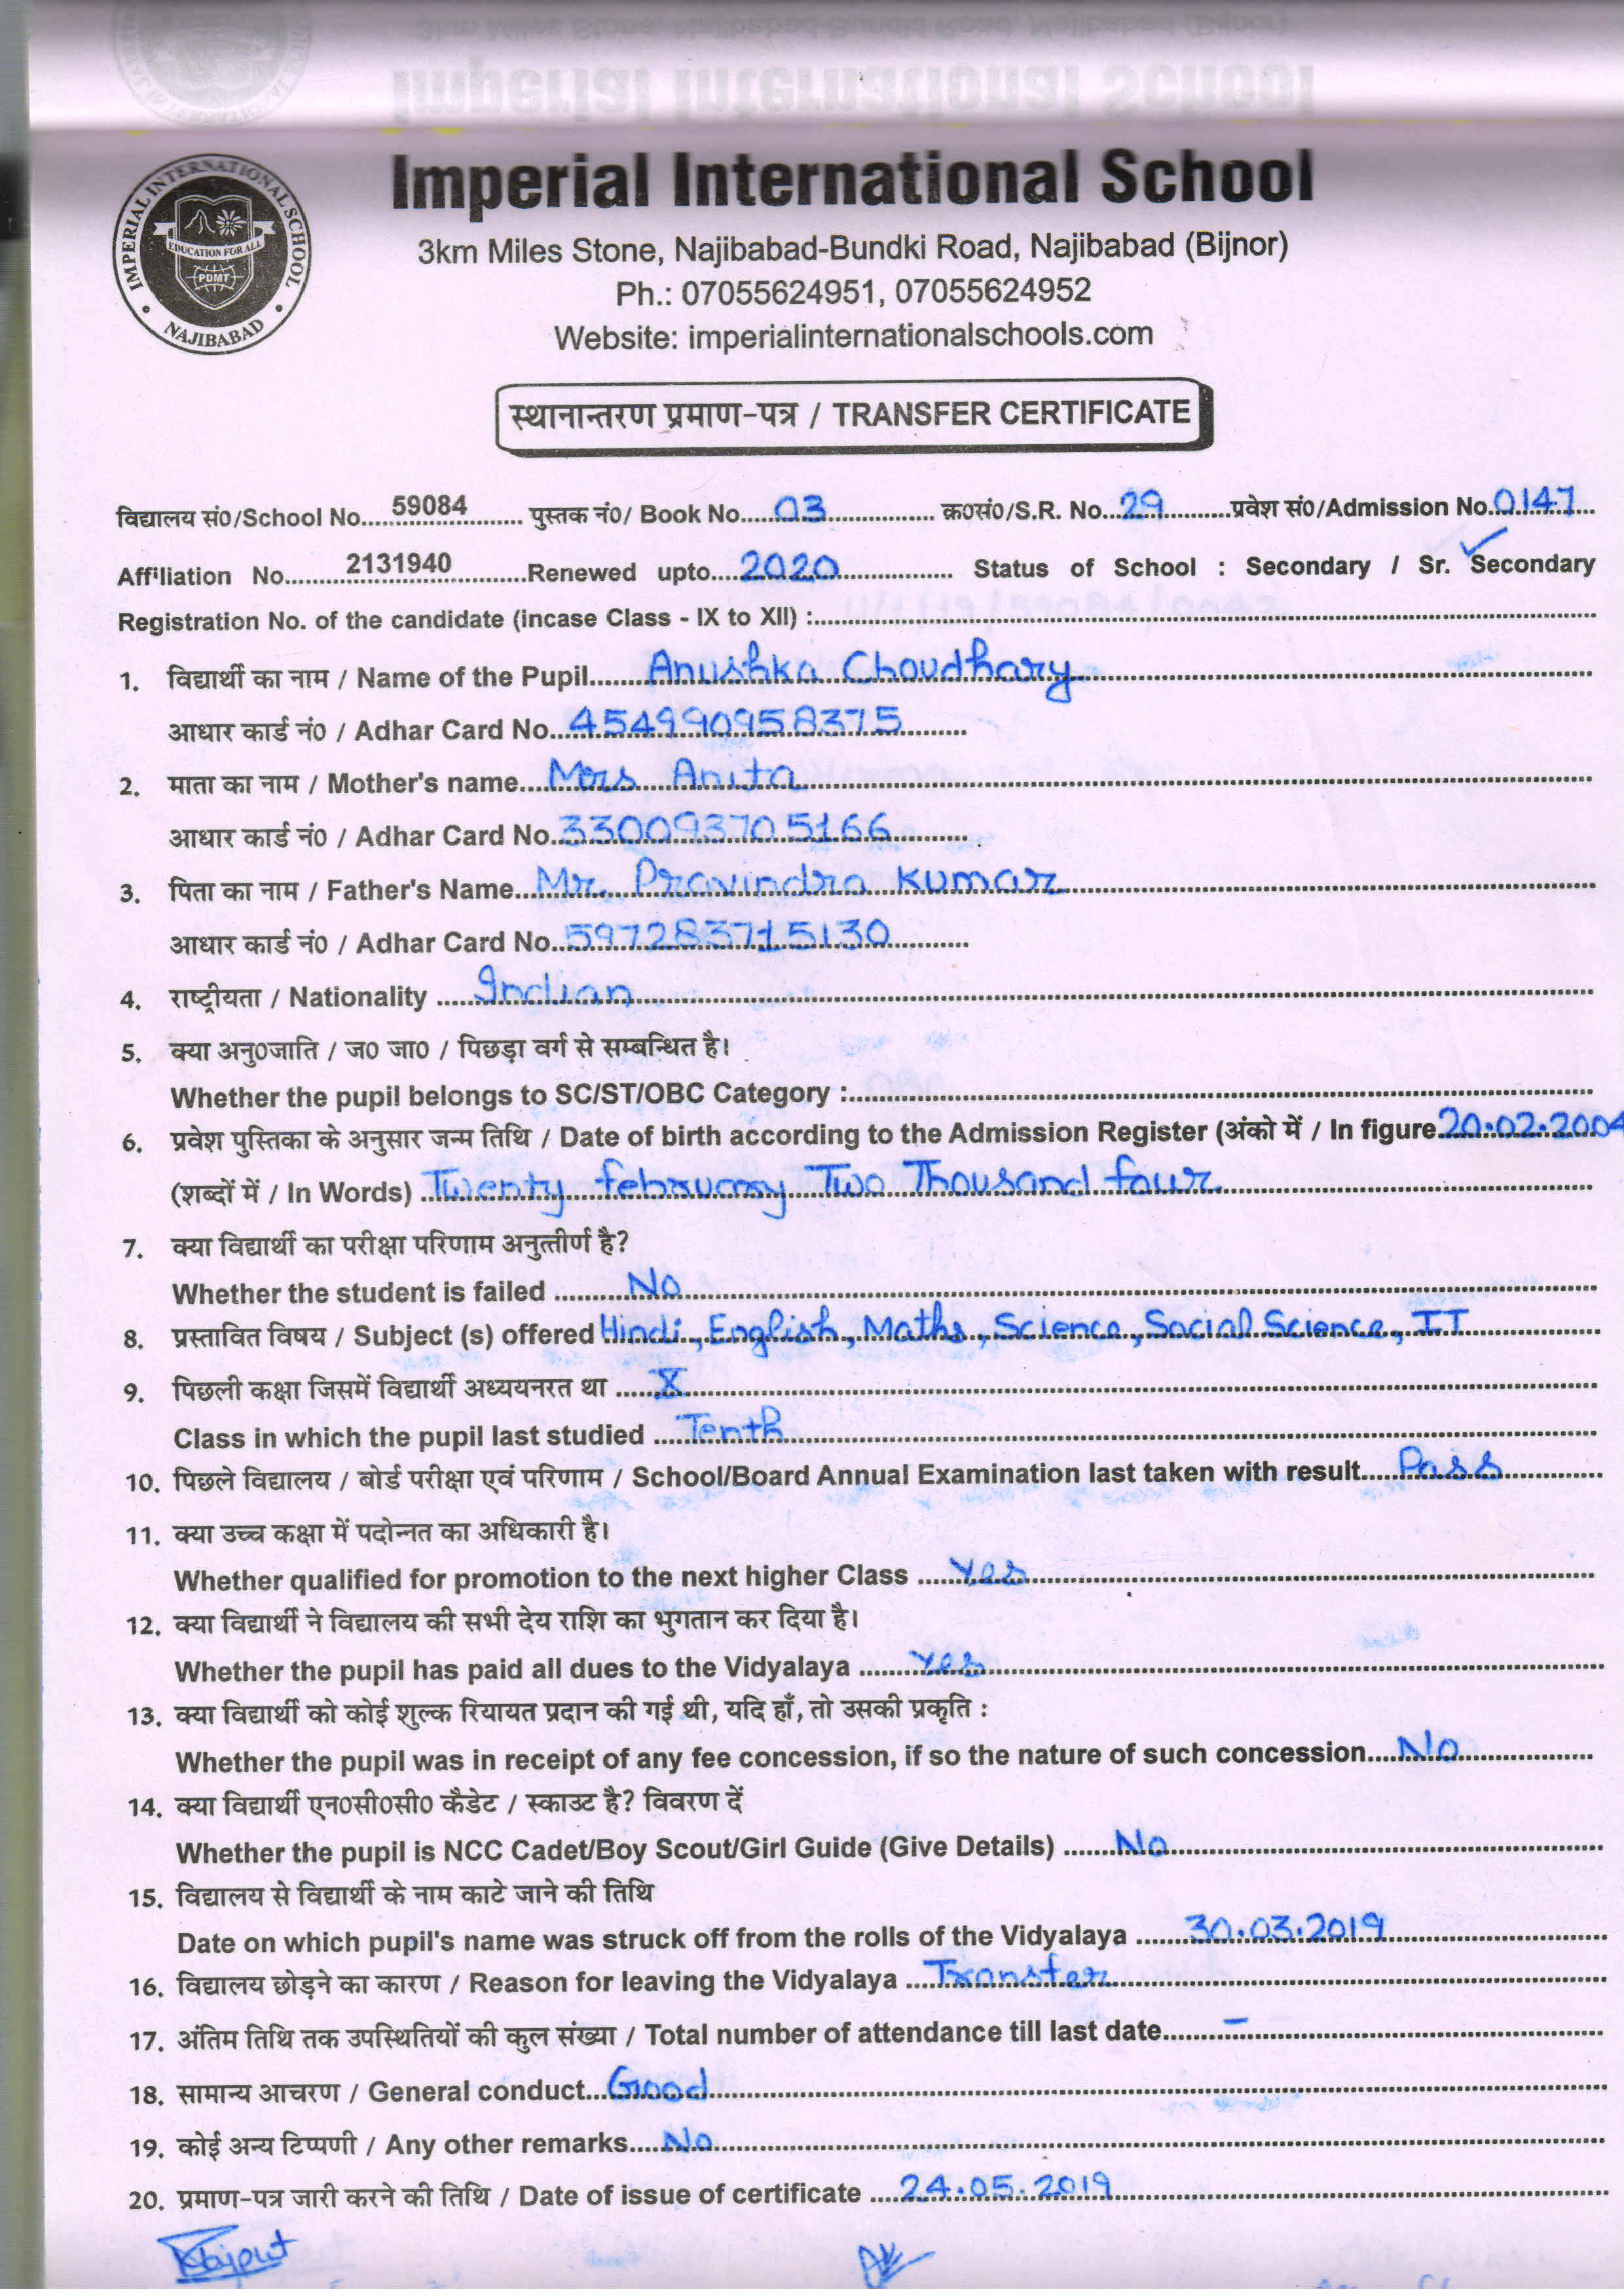 Imperial International School
IMPERIAL INTERNATIONAL SCHOOL
EDUCATION FOR ALL
PDMT
NAJIBABAD
3km Miles Stone, Najibabad-Bundki Road, Najibabad (Bijnor)
Ph.: 07055624951, 07055624952
Website: imperialinternationalschools.com
स्थानान्तरण प्रमाण-पत्र / TRANSFER CERTIFICATE
विद्यालय सं0/School No. 59084 पुस्तक नं0/ Book No. 03 क्र0सं0/S.R. No. 29 प्रवेश सं0/Admission No. 0147
Affiliation No. 2131940 Renewed upto 2020 Status of School : Secondary / Sr. Secondary
Registration No. of the candidate (incase Class - IX to XII) :
1. विद्यार्थी का नाम / Name of the Pupil Anushka Choudhary
आधार कार्ड नं0 / Adhar Card No. 454990958375
2. माता का नाम / Mother's name Mrs Anita
आधार कार्ड नं0 / Adhar Card No. 330093705166
3. पिता का नाम / Father's Name Mr. Pravindra Kumar
आधार कार्ड नं0 / Adhar Card No. 597283715130
4. राष्ट्रीयता / Nationality Indian
5. क्या अनु0जाति / ज0 जा0 / पिछड़ा वर्ग से सम्बन्धित है।
Whether the pupil belongs to SC/ST/OBC Category :
6. प्रवेश पुस्तिका के अनुसार जन्म तिथि / Date of birth according to the Admission Register (अंको में / In figure 20.02.2004
(शब्दों में / In Words) Twenty february Two Thousand four
7. क्या विद्यार्थी का परीक्षा परिणाम अनुत्तीर्ण है?
Whether the student is failed No
8. प्रस्तावित विषय / Subject (s) offered Hindi, English, Maths, Science, Social Science, IT
9. पिछली कक्षा जिसमें विद्यार्थी अध्ययनरत था X
Class in which the pupil last studied Tenth
10. पिछले विद्यालय / बोर्ड परीक्षा एवं परिणाम / School/Board Annual Examination last taken with result Pass
11. क्या उच्च कक्षा में पदोन्नत का अधिकारी है।
Whether qualified for promotion to the next higher Class Yes
12. क्या विद्यार्थी ने विद्यालय की सभी देय राशि का भुगतान कर दिया है।
Whether the pupil has paid all dues to the Vidyalaya Yes
13. क्या विद्यार्थी को कोई शुल्क रियायत प्रदान की गई थी, यदि हाँ, तो उसकी प्रकृति :
Whether the pupil was in receipt of any fee concession, if so the nature of such concession No
14. क्या विद्यार्थी एन0सी0सी0 कैडेट / स्काउट है? विवरण दें
Whether the pupil is NCC Cadet/Boy Scout/Girl Guide (Give Details) No
15. विद्यालय से विद्यार्थी के नाम काटे जाने की तिथि
Date on which pupil's name was struck off from the rolls of the Vidyalaya 30.03.2019
16. विद्यालय छोड़ने का कारण / Reason for leaving the Vidyalaya Transfer
17. अंतिम तिथि तक उपस्थितियों की कुल संख्या / Total number of attendance till last date –
18. सामान्य आचरण / General conduct Good
19. कोई अन्य टिप्पणी / Any other remarks No
20. प्रमाण-पत्र जारी करने की तिथि / Date of issue of certificate 24.05.2019